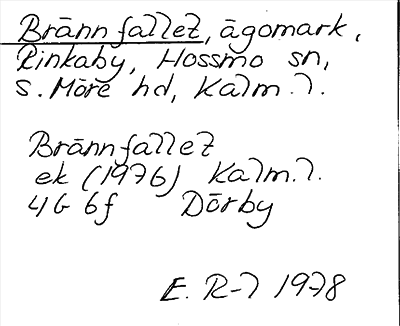 Brännfallet, ägomark,
Rinkaby, Hossmo sn,
S. Möre hd, Kalm. l.
Brännfallet
ek (1976) Kalm. l.
4G 6f Dörby
E. R-l 1978